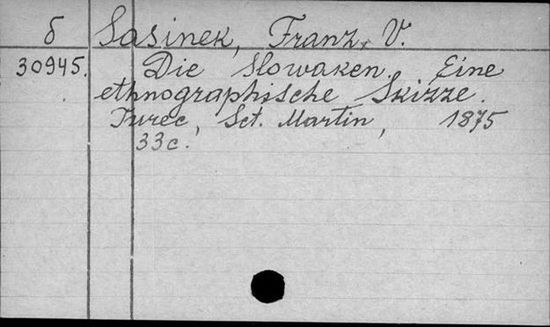 б Sasinek, Franz, V.
30945. Die Slowaken. Eine
ethnographische Skizze.
Turec, Sct. Martin, 1875
33c.